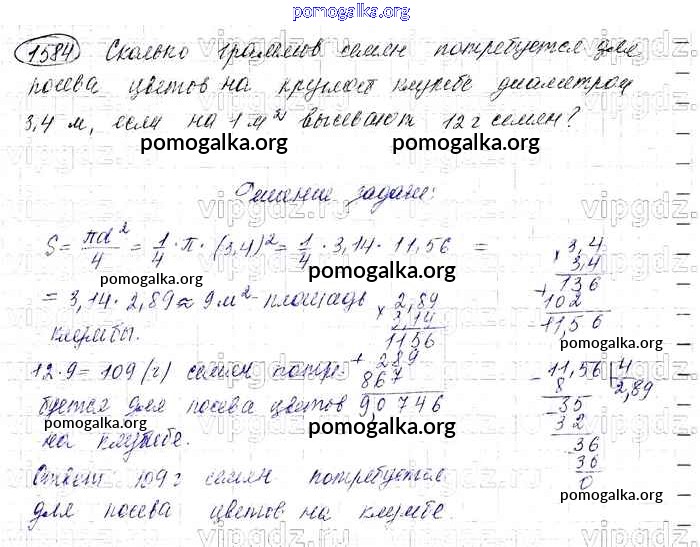 pomogalka.org
1584 Сколько граммов семян потребуется для
посева цветов на круглой клумбе диаметром
3,4 м, если на 1 м² высевают 12 г семян?
pomogalka.org pomogalka.org
Решение задачи:
S = πd²/4 = 1/4 · π · (3,4)² = 1/4 · 3,14 · 11,56 =
pomogalka.org
= 3,14 · 2,89 ≈ 9 м² - площадь
клумбы.
12 · 9 = 109 (г) семян потре-
буется для посева цветов
на клумбе.
pomogalka.org
Ответ: 109 г семян потребуется
pomogalka.org
для посева цветов на клумбе.
× 3,4
3,4
+ 136
102
11,56
pomogalka.org
× 2,89
3,14
pomogalka.org
1156
+ 289
867
9,0746
pomogalka.org
- 11,56 | 4
8 2,89
35
32
36
36
0
pomogalka.org
vipgdz.ru